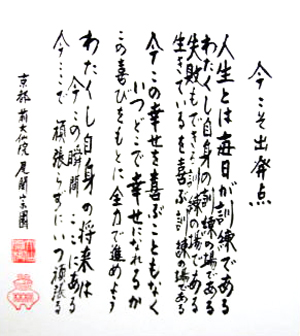 今こそ出発点
人生とは毎日が訓練である
わたくし自身の訓練の場である
失敗もできる訓練の場である
生きているを喜ぶ訓練の場である
今この幸せを喜ぶこともなく
いつどこで幸せになれるか
この喜びをもとに全力で進めよう
わたくし自身の将来は
今この瞬間ここにある
今ここで頑張らずにいつ頑張る
京都前大仙院尾関宗園